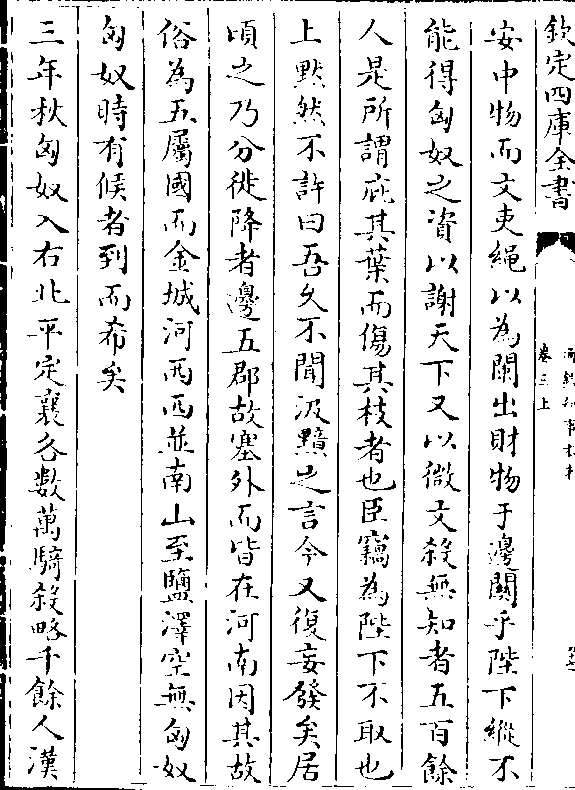 欽定四庫全書
卷三上
安中物而文吏繩以為闌出財物于邊關乎陛下縱不
能得匈奴之資以謝天下又以微文殺無知者五百餘
人是所謂庇其葉而傷其枝者也臣竊為陛下不取也
上默然不許曰吾久不聞汲黯之言今又復妄發矣居
頃之乃分徙降者邊五郡故塞外而皆在河南因其故
俗為五屬國而金城河西西並南山至鹽澤空無匈奴
匈奴時有候者到而希矣
三年秋匈奴入右北平定襄各數萬騎殺略千餘人漢